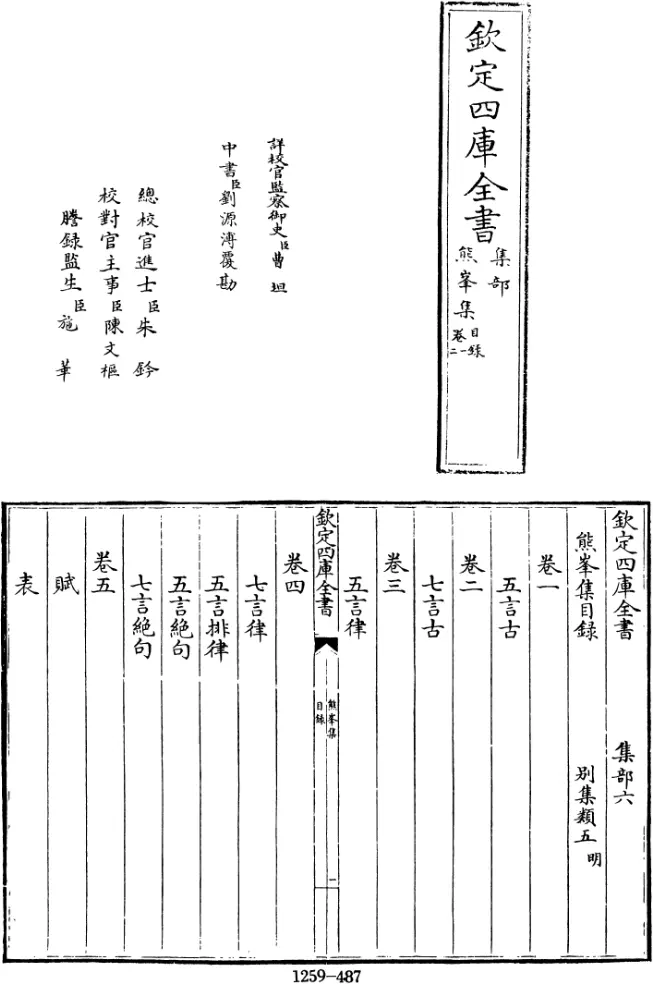 欽定四庫全書
集部
熊峯集
目録
卷一
二
詳校官監察御史臣曹坦
中書臣劉源溥覆勘
總校官進士臣朱鈐
校對官主事臣陳文樞
謄録監生臣施華
欽定四庫全書 集部六
熊峯集目録 别集類五明
卷一
五言古
卷二
七言古
卷三
五言律
欽定四庫全書
熊峯集
目録
一
卷四
七言律
五言排律
五言絶句
七言絶句
卷五
賦
表
1259-487